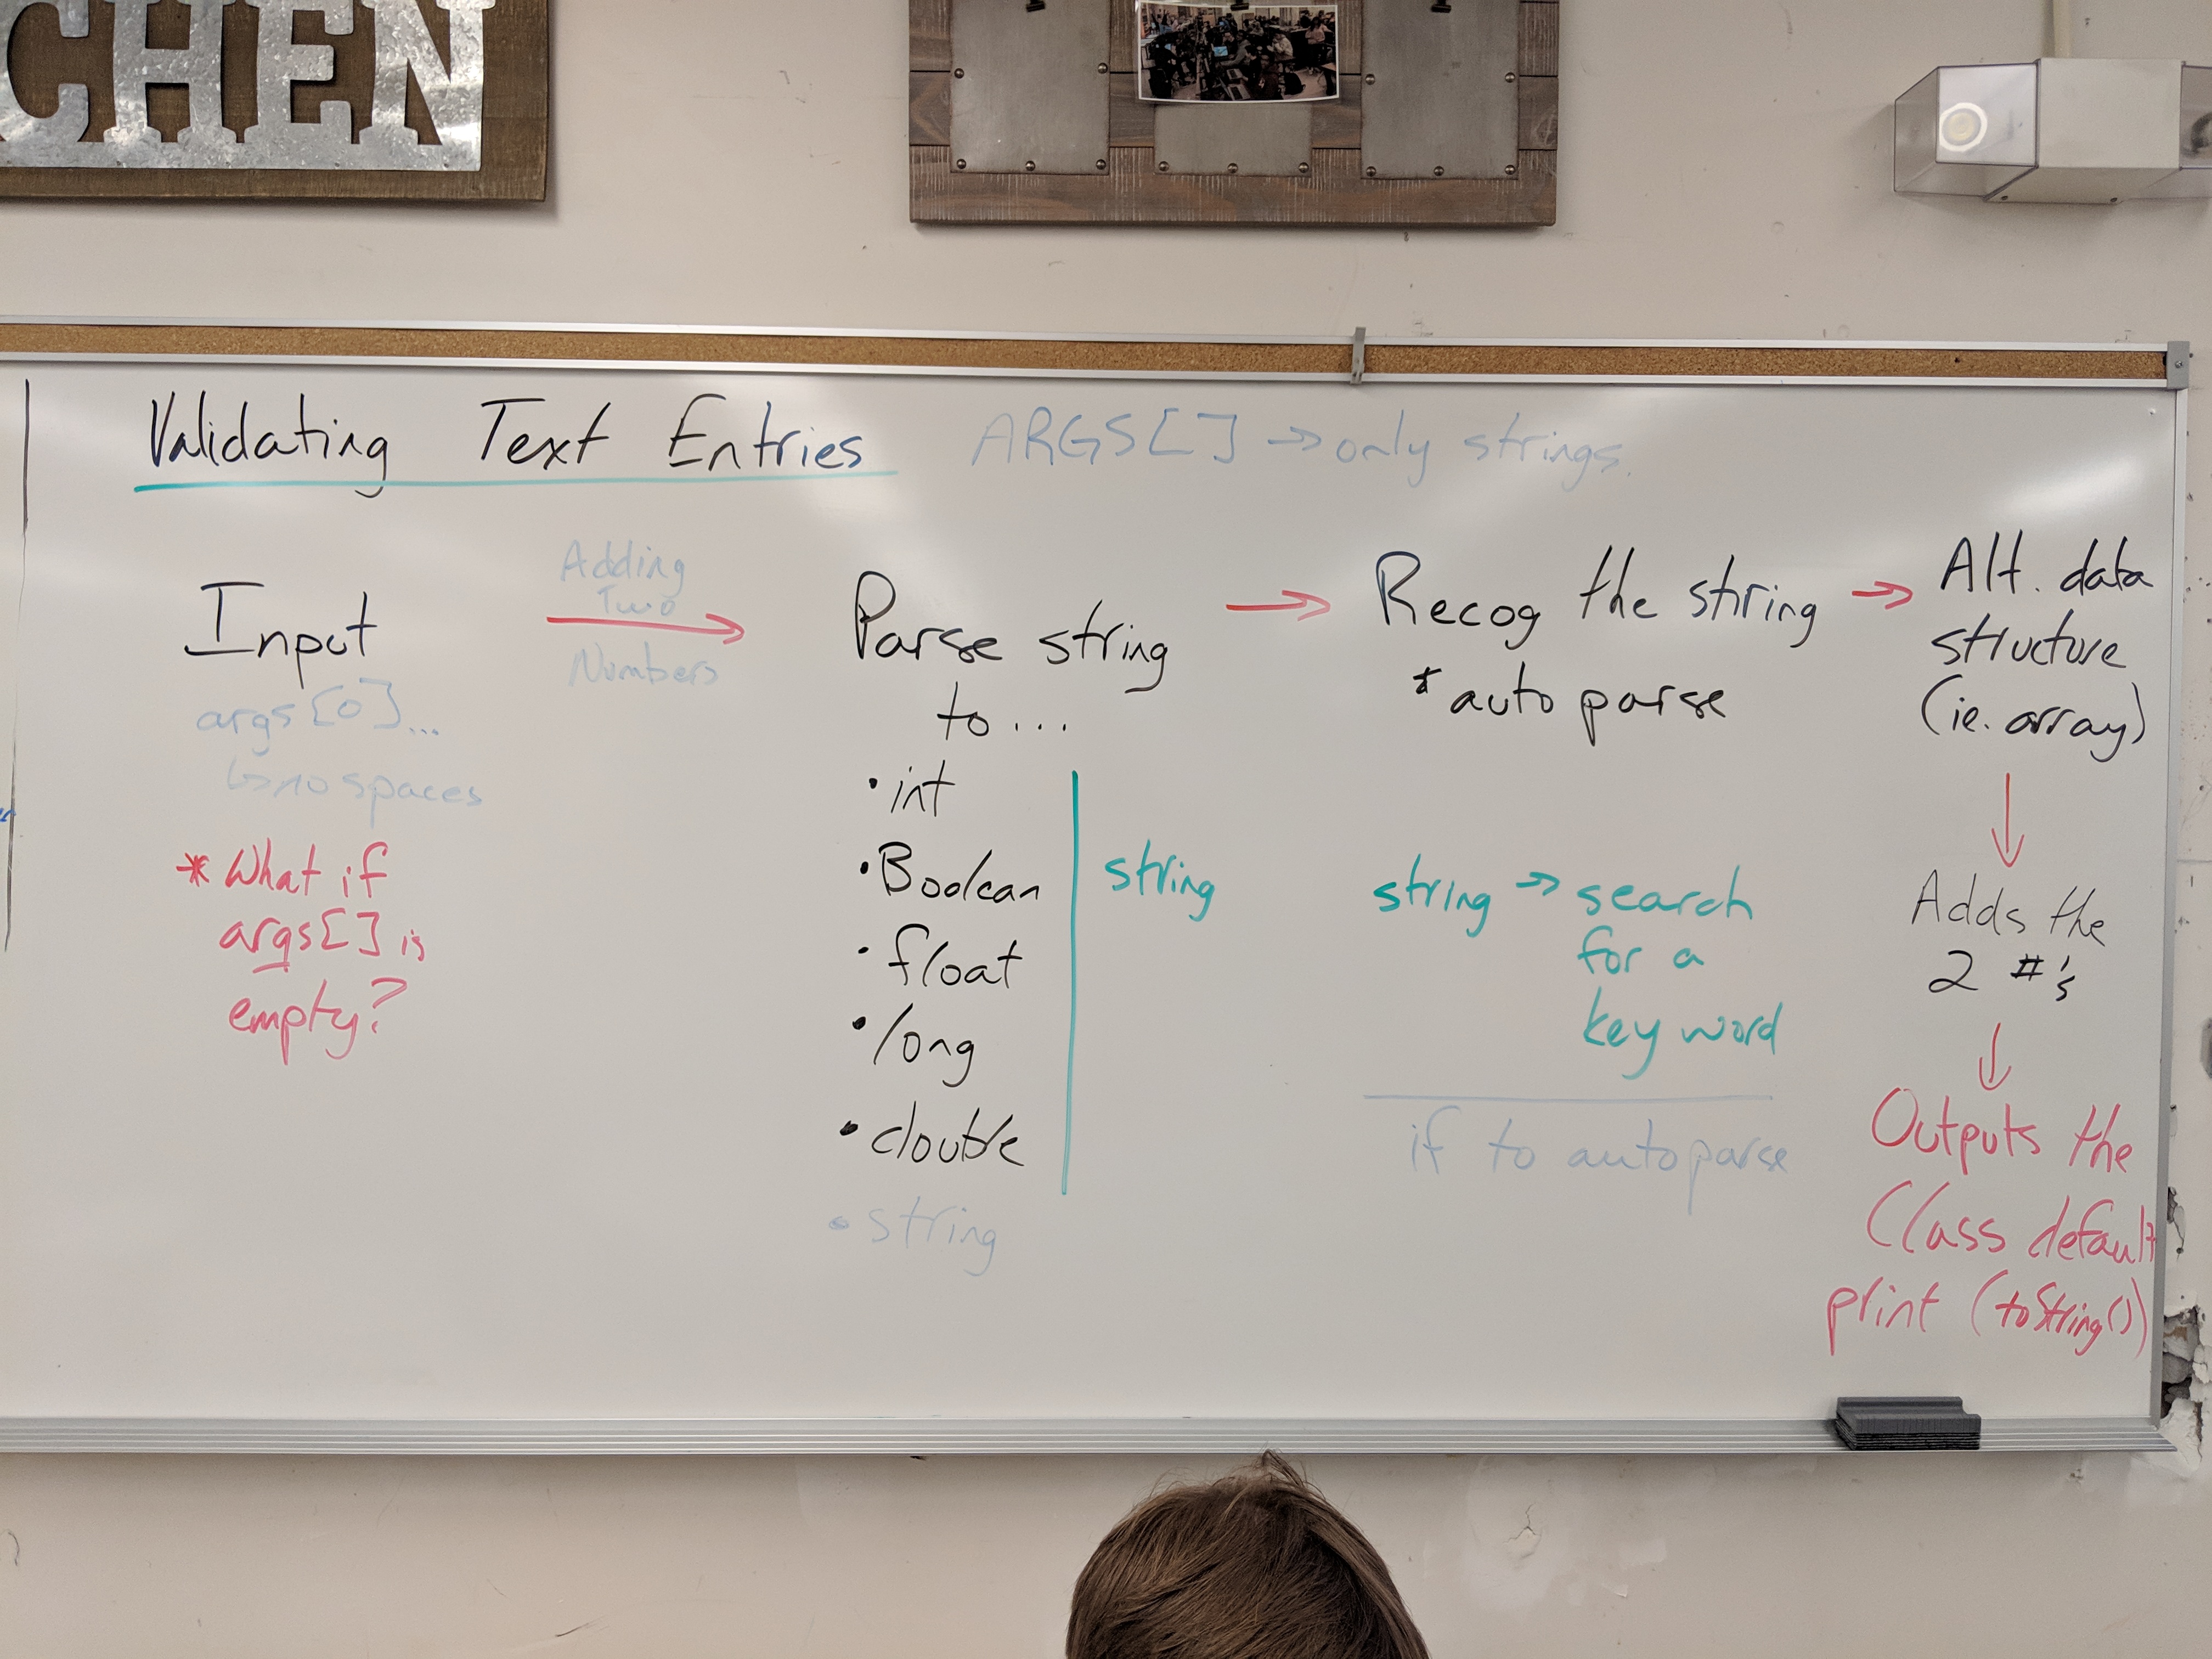 CHEN
Validating Text Entries ARGS[] → only strings.
Input
args[0]...
↳ no spaces
* What if
args[] is
empty?
Adding
Two
Numbers
→
Parse string
to ...
• int
• Boolean
• float
• long
• double
• string
string
→
Recog the string
* auto parse
string → search
for a
key word
if to autoparse
→
Alt. data
structure
(ie. array)
↓
Adds the
2 #'s
↓
Outputs the
Class default
print (toString())